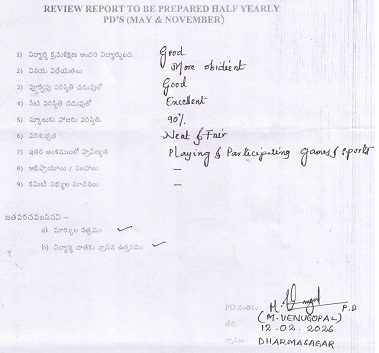 REVIEW REPORT TO BE PREPARED HALF YEARLY
PD'S (MAY & NOVEMBER)
1) విద్యార్థి క్రమశిక్షణ అందరి విద్యార్థులది. Good
2) వినయ విధేయతలు More obidient
3) పూర్వపు పరిస్థితి చదువులో Good
4) నేటి పరిస్థితి చదువులో Excellent
5) స్కూలుకు హాజరు పరిస్థితి. 90%
6) పరిశుభ్రత Neat & Fair
7) ఇతర అంశములలో ప్రావీణ్యత Playing & Participating Games & Sports
8) అభిప్రాయాలు / సలహాలు –
9) కమిటీ సభ్యుల సూచనలు –
జతపరచవలసినవి :-
a) మార్కుల పత్రము ✓
b) విద్యార్థి చేతకు వ్రాసిన ఉత్తరము ✓
PD సంతకం P.D
(M. VENUGOPAL)
తేది. 12.02.2026
స్థలం DHARMASAGAR